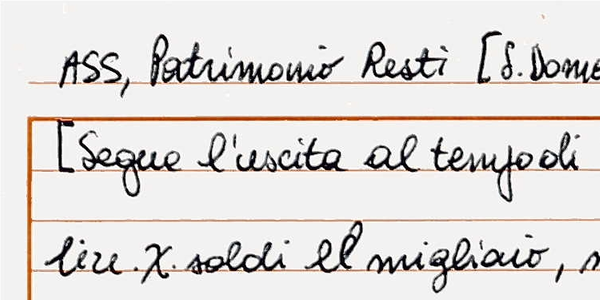 ASS, Patrimonio Resti [S. Dome
[Segue l'uscita al tempo di
lire .X. soldi el migliaio,